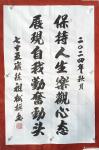 二〇二四年秋月
保持人生乐观心态
展现自我勤奋劲头
七十五岁